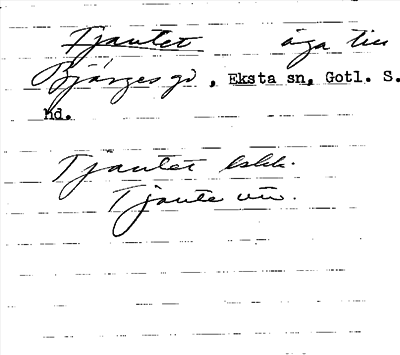 Tjautet äga till
Bjärges gd, Eksta sn, Gotl. S.
hd.
Tjautet bskr.
Tjaute vin.